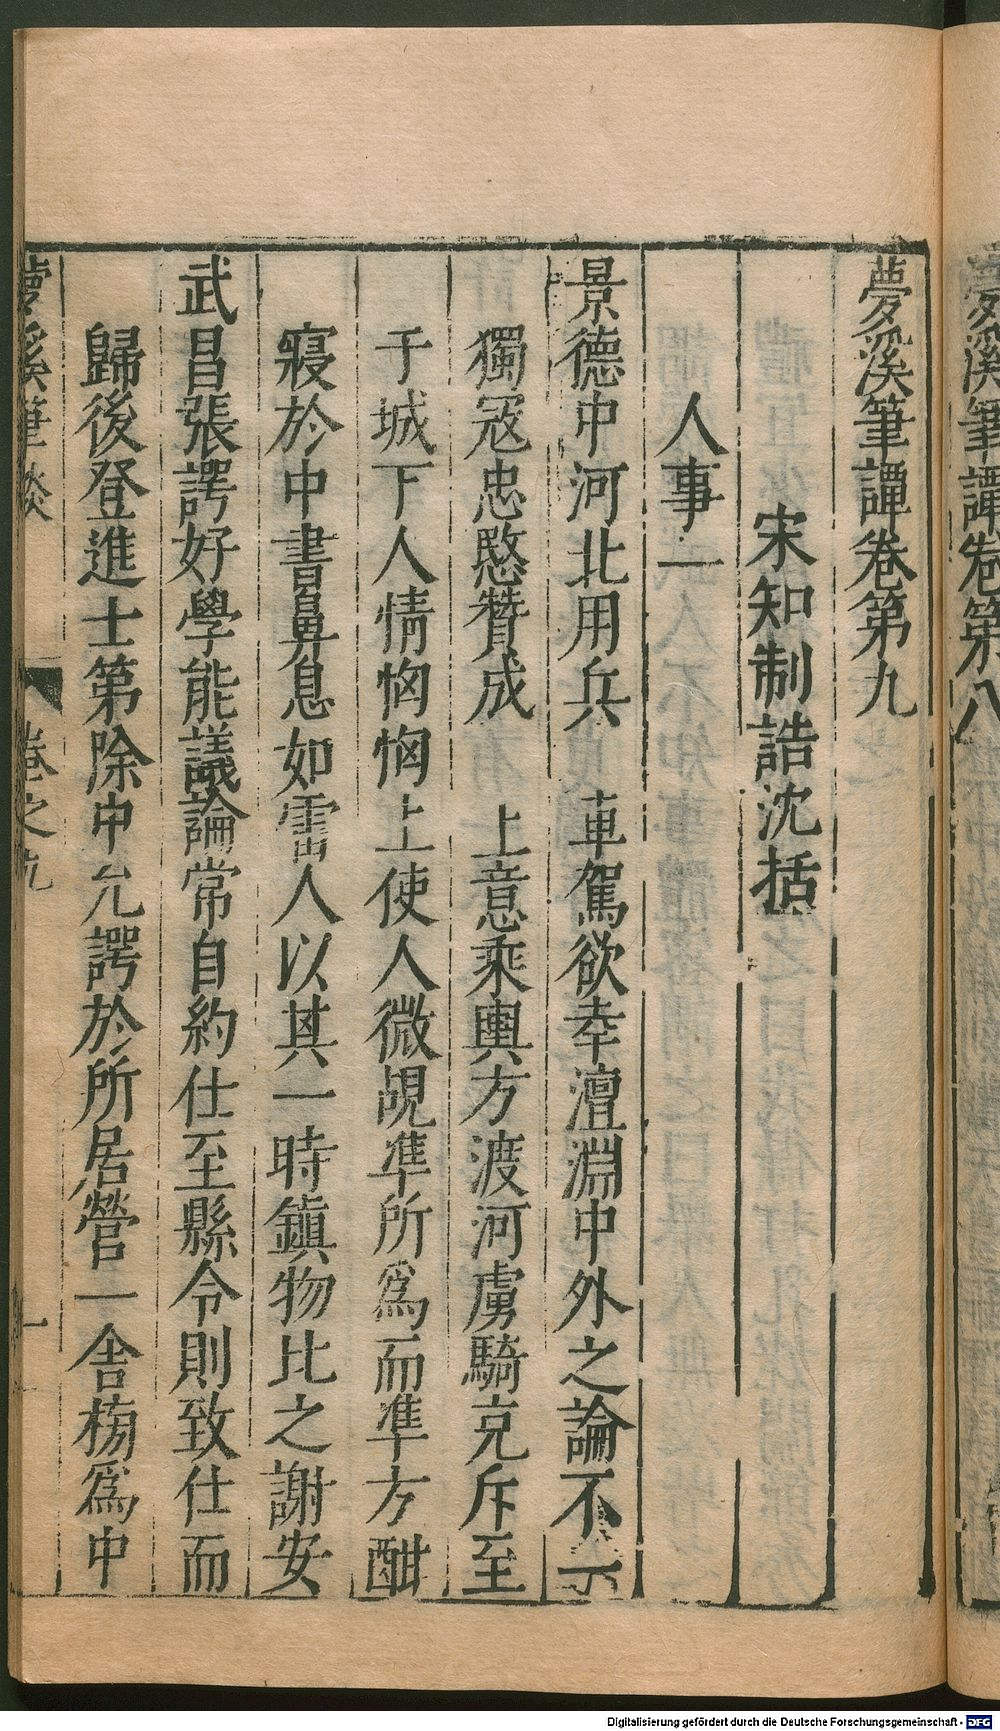 夢溪筆譚卷第八
夢溪筆譚卷第九
宋知制誥沈括
人事一
景德中河北用兵　車駕欲幸澶淵中外之論不一
獨冦忠愍贊成　上意乘輿方渡河虜騎充斥至
于城下人情恟恟上使人微覘凖所爲而凖方酣
寢於中書鼻息如雷人以其一時鎮物比之謝安
武昌張諤好學能議論常自約仕至縣令則致仕而
歸後登進士第除中允諤於所居營一舍榜爲中
夢溪筆談　卷之九　一
Digitalisierung gefördert durch die Deutsche Forschungsgemeinschaft - DFG